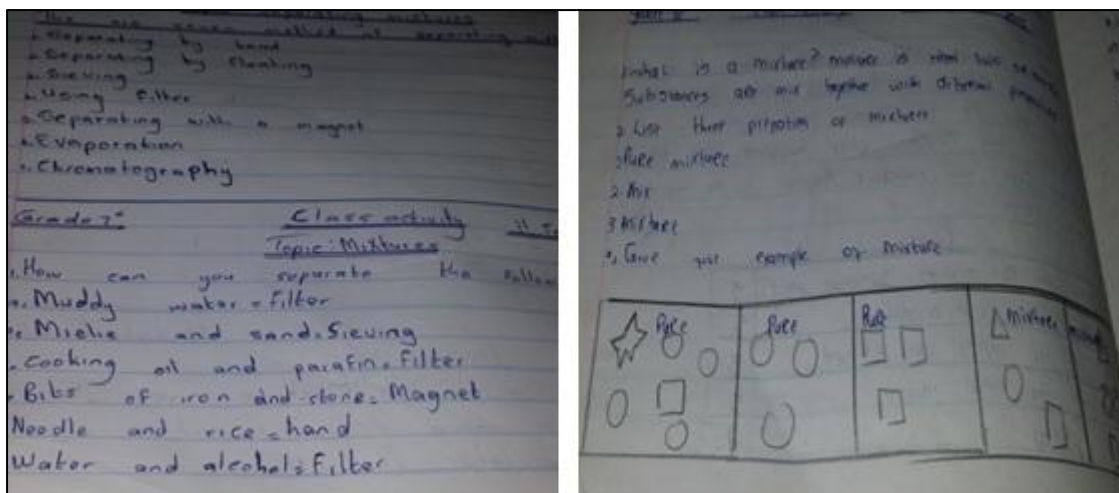 separating mixtures
The are seven method of separating
1. Separating by hand
2. Separating by floating
3. Sieving
4. Using filter
5. Separating with a magnet
6. Evaporation
7. Chromatography
Grade 7 Class activity
Topic: Mixtures
1. How can you separate the follow
a. Muddy water = filter
b. Mielie and sand = Sieving
. Cooking oil and parafin = filter
. Bits of iron and stone = Magnet
Needle and rice = hand
Water and alcohol = Filter
1. What is a mixture? mixture is when two or
Substances are mix together with different
2. List three properties of mixtures
1. Pure mixture
2. Mix
3. Mixture
3. Give example of mixture
Pure Pure Pure mixture